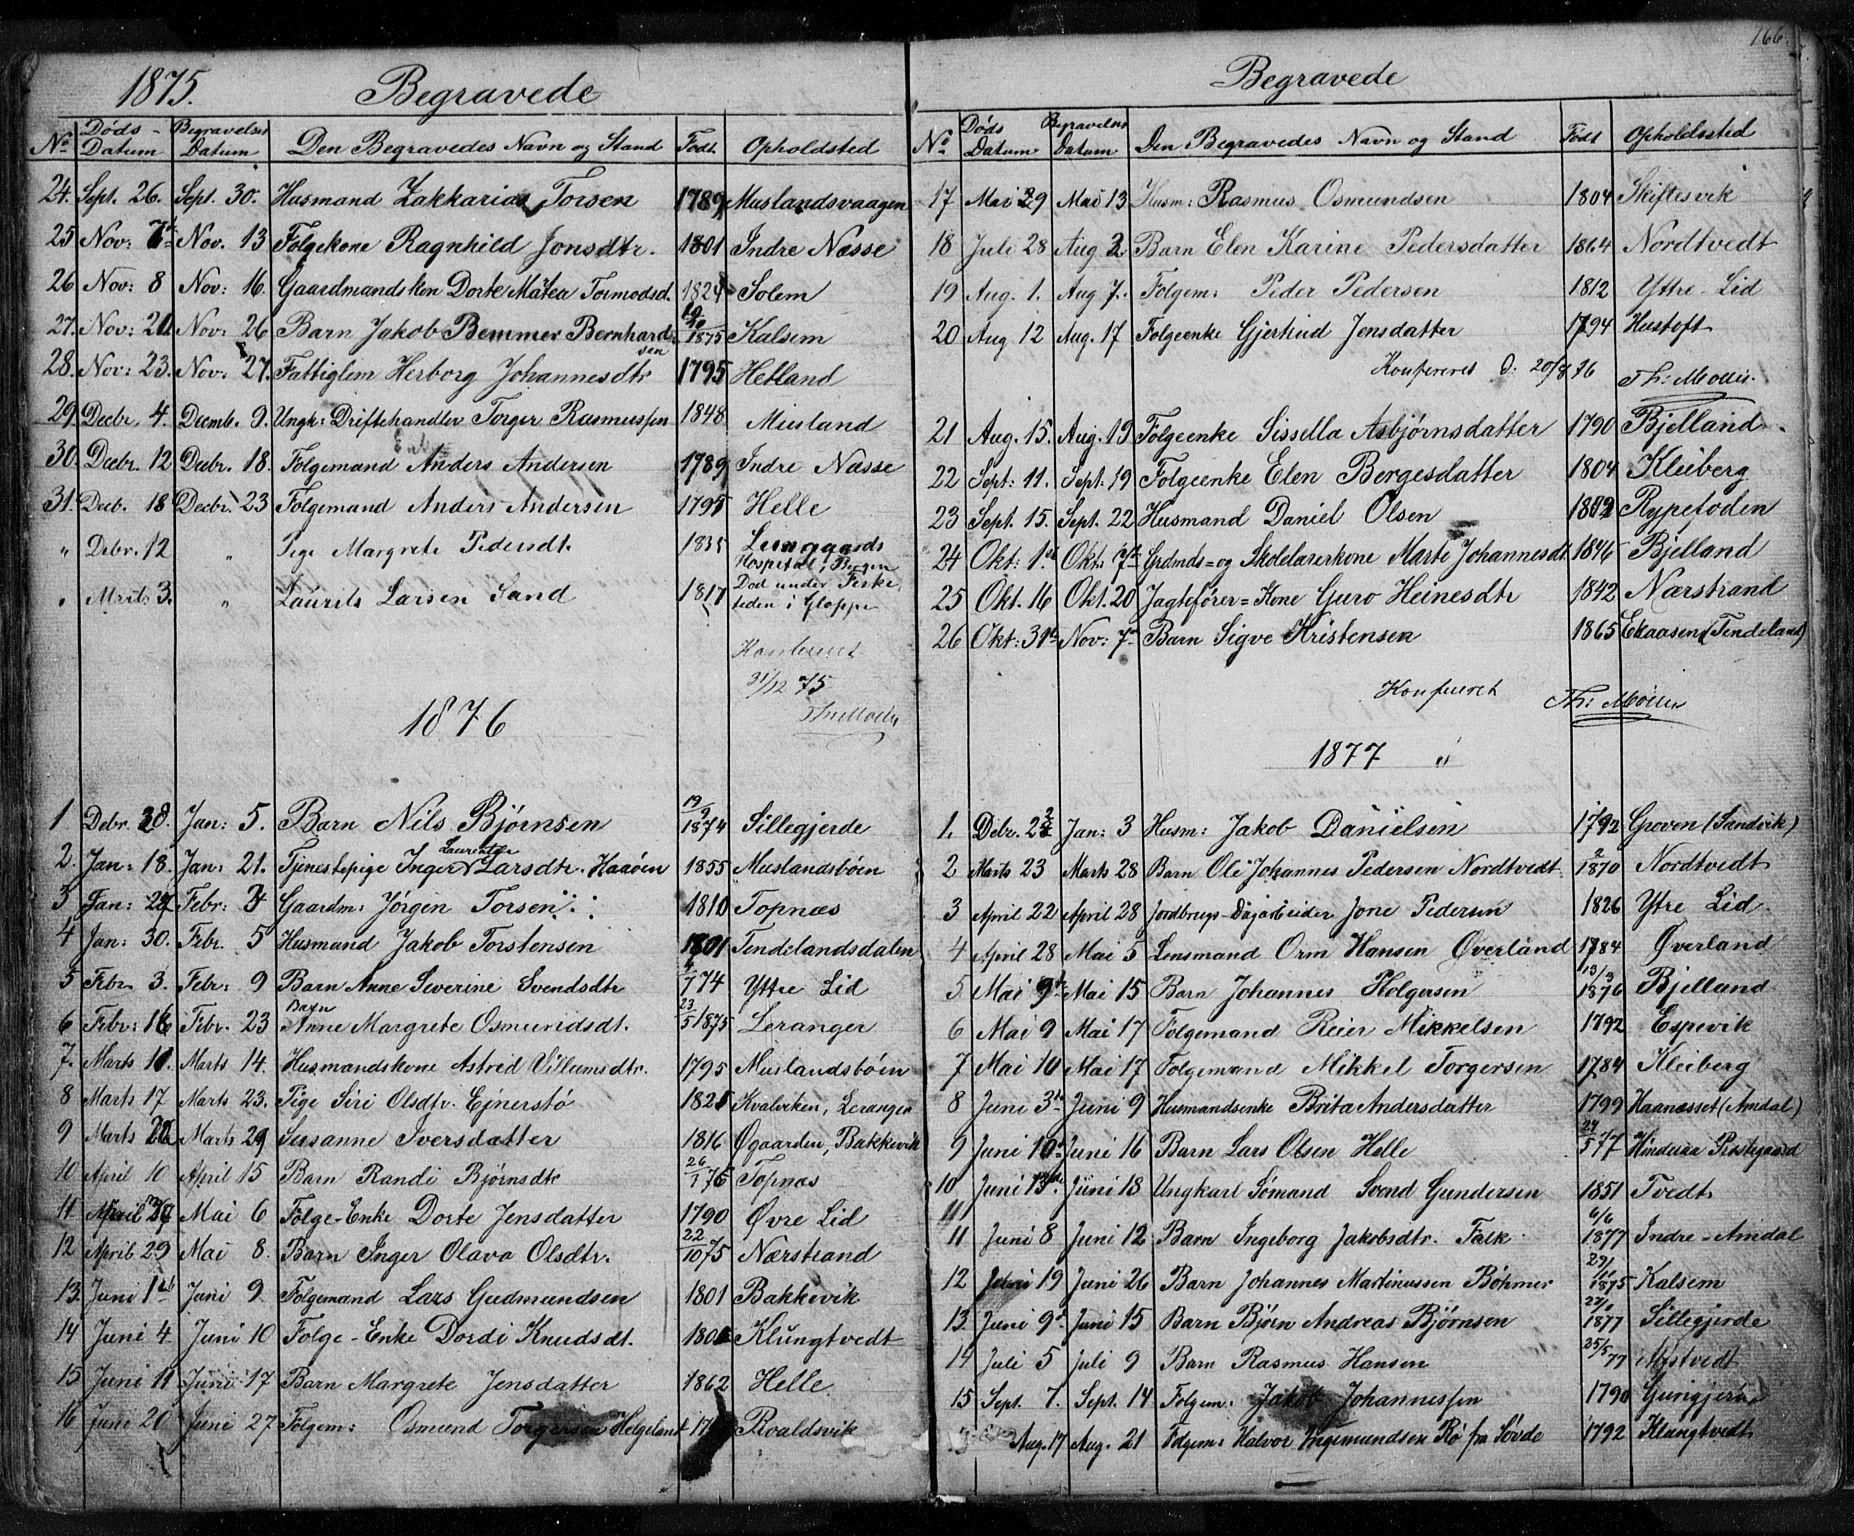 166.
1875. Begravede
No Døds-Datum Begravelses Datum Den Begravedes Navn og Stand Født Opholdsted
24. Sept. 26. Sept. 30. Husmand Zakkarias Torsen 1789 Muslandsvaagen
25 Nov: Nov. 13 Folgekone Ragnhild Jonsdtr. 1801 Indre Næsse
26 Nov: 8 Nov: 16. Gaardmandskon Dorte Matea Tormodsd. 1824 Solem
27. Nov: 21. Nov: 26 Barn Jakob Bemmer Bernhardsen 1875 Kalsem
28. Nov: 23. Nov: 27. Fattiglem Herborg Johannesdtr 1795 Hetland
29. Decbr. 4. Decemb. 9. Ungk: Driftehandler Torger Rasmussen 1848 Musland
30. Decbr. 12 Decbr. 18. Folgemand Anders Andersen 1789 Indre Næsse
31. Decb. 18 Decbr. 23 Folgemand Anders Andersen 1795 Helle
" Debr. 12 " Pige Margrete Pedersdt. 1835 Lungaards
Hospital, Bergen
" Marts 3. " Laurits Larsen Sand 1817 Død under Fiske
tiden i Gloppe
Konfereret
31/12 75
Th: Møller
1876
1 Debr. 28. Jan: 5. Barn Nils Bjørnsen 19/9 1874 Sillegjerde
2. Jan: 18. Jan: 21. Tjenestepige Inger Laurentse Larsdtr. Haaøen 1855 Muslandsbøen
3 Jan: 27 Febr: 3 Gaardm: Jørgen Torsen 1810 Topnæs
4 Jan: 30. Febr. 5 Husmand Jakob Torstensen 1801 Tendelandsdalen
5 Febr 3. Febr: 9 Barn Anne Severine Svendsdtr 74 Yttre Lid
6 Febr: 16 Febr. 23 Barn Anne Margrete Osmundsdt. 23/5 1875 Leranger
7. Marts 10. Marts 14. Husmandskone Astrid Villumsdtr. 1795 Muslandsbøen
8 Marts 17 Marts 23. Pige Siri Olsdtr. Ejnerstø 1821 Kvalviken, Leranger
9 Marts 22 Marts 29 Susanne Iversdatter 1816 Øgaarden, Bakkevik
10 April 10 April 15 Barn Randi Bjørnsdtr 26/1 76 Topnæs
11 April Mai 6 Folge-Enke Dorte Jensdatter 1790 Øvre Lid
12 April 29 Mai 8. Barn Inger Olava Olsdtr. 22/10 75 Nærstrand
13. Juni 1st Juni 9. Folgemand Lars Gudmundsen 1801 Bakkevik
14 Juni 4. Juni 10 Folge-Enke Dordi Knudsdt. 1801 Klungtvedt
15 Juni 11 Juni 17 Barn Margrete Jensdatter 1862 Helle.
16 Juni 20 Juni 27 Folgem: Osmund Torgersen Helgeland Roaldsvik
Begravede
No Døds Datum Begravelses Datum Den Begravedes Navn og Stand Født Opholdssted
17 Mai 29 Mai 13 Husm: Rasmus Osmundsen 1804 Skiftesvik
18 Juli 28 Aug 2 Barn Elen Karine Pedersdatter 1864 Nordtvedt
19 Aug. 1. Aug 7. Folgem: Peder Pedersen 1812 Yttre Lid
20 Aug 12 Aug. 17 Folgeenke Gjertrud Jensdatter 1794 Hustoft
Konfereret d: 20/8 76 Th: Møller.
21 Aug. 15. Aug. 19 Folgeenke Sissella Asbjørnsdatter 1790 Bjelland.
22 Sept: 11. Sept. 19 Folgeenke Elen Børgesdatter 1804 Kleiberg
23 Sept. 15. Sept. 22 Husmand Daniel Olsen 1802 Rypefoden
24 Okt: 1st Okt: 7de Grdmds= og Skolelærerkone Marte Johannesdt. 1846 Bjelland
25 Okt. 16 Okt. 20 Jagtefører=Kone Guro Heinesdtr 1842 Nærstrand
26 Okt: 31te Nov: 7de Barn Sigve Kristensen 1865 Ekaasen (Tendeland)
Konfereret Th: Møller
1877 "
1. Debr. Jan: 3 Husm: Jakob Danielsen 1792 Groven (Sandvik)
2 Marts 23 Marts 28 Barn Ole Johannes Pedersen Nordtvedt. 1870 Nordtvedt
3 April 22 April 28 Jordbrugs-Dagarbeider Jone Pedersen 1826 Ytre Lid.
4 April 28 Mai 5 Lensmand Orm Hansen Øverland 1784 Øverland
5 Mai 9de Mai 15 Barn Johannes Holgersen 13/3 1876 Bjelland
6 Mai 9 Mai 17 Folgemand Reier Mikkelsen 1792 Espevik
7 Mai 10 Mai 17 Folgemand Mikkel Torgersen 1784 Kleiberg
8 Juni 3de Juni 9 Husmandsenke Brita Andersdatter 1799 Haanæsset (Amdal)
9 Juni 10de Juni 16 Barn Lars Olsen Helle 24/5 77 Hinderaa Præstegaard
10 Juni 13de. Juni 18 Ungkarl Sømand Svend Gundersen 1851 Tvedt
11 Juni 8 Juni 12 Barn Ingeborg Jakobsdtr. Falk. 6/6 1877 Indre-Amdal
12 Juni 19 Juni 26 Barn Johannes Martinussen Bøhmer 29/11 1875 Kalsem
13. Juni 9d. Juni 15 Barn Bjørn Andreas Bjørnsen 1877 Sillegjerde
14 Juli 5 Juli 9 Barn Rasmus Hansen 25/5 77 Nøstvedt
15 Sept. 7. Sept. 14 Folgem: Jakob Johannessen 1790 Gunigjerde
Aug. 17 Aug. 21 Folgem: Halvor Ingemundsen Rø fra Søvde 1792 Klungtvedt